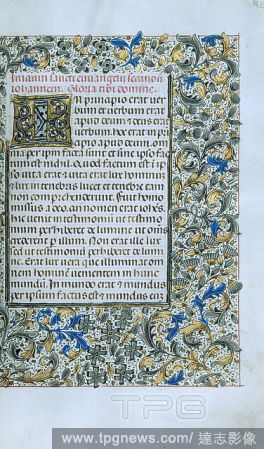 Initium sancti evangelij secundū
Iohannem. Gloria tibi domine.
In principio erat ver
bum et verbum erat
apud deum et deus erat
verbum. hoc erat in pri
apio apud deum. om
nia per ipsum facta sunt et sine ipso fac
tum est nichil. Quod factum est i ip
so vita erat et vita erat lux hominū
et lux in tenebris lucet et tenebre eam
non comprehenderunt. Fuit homo
missus a deo. cui nomen erat iohes.
hic venit in testimoniū ut testimo
nium perhiberet de lumine ut om̄s
crederent p illum. Non erat ille lux
sed ut testimoniū perhiberet de lumi
ne. Erat lux vera que illuminat om
nem hominē venientem in hunc
mundū. In mundo erat et mundus
per ipsum factus est et mundus eū
TPG
www.tpgnews.com / 達志影像